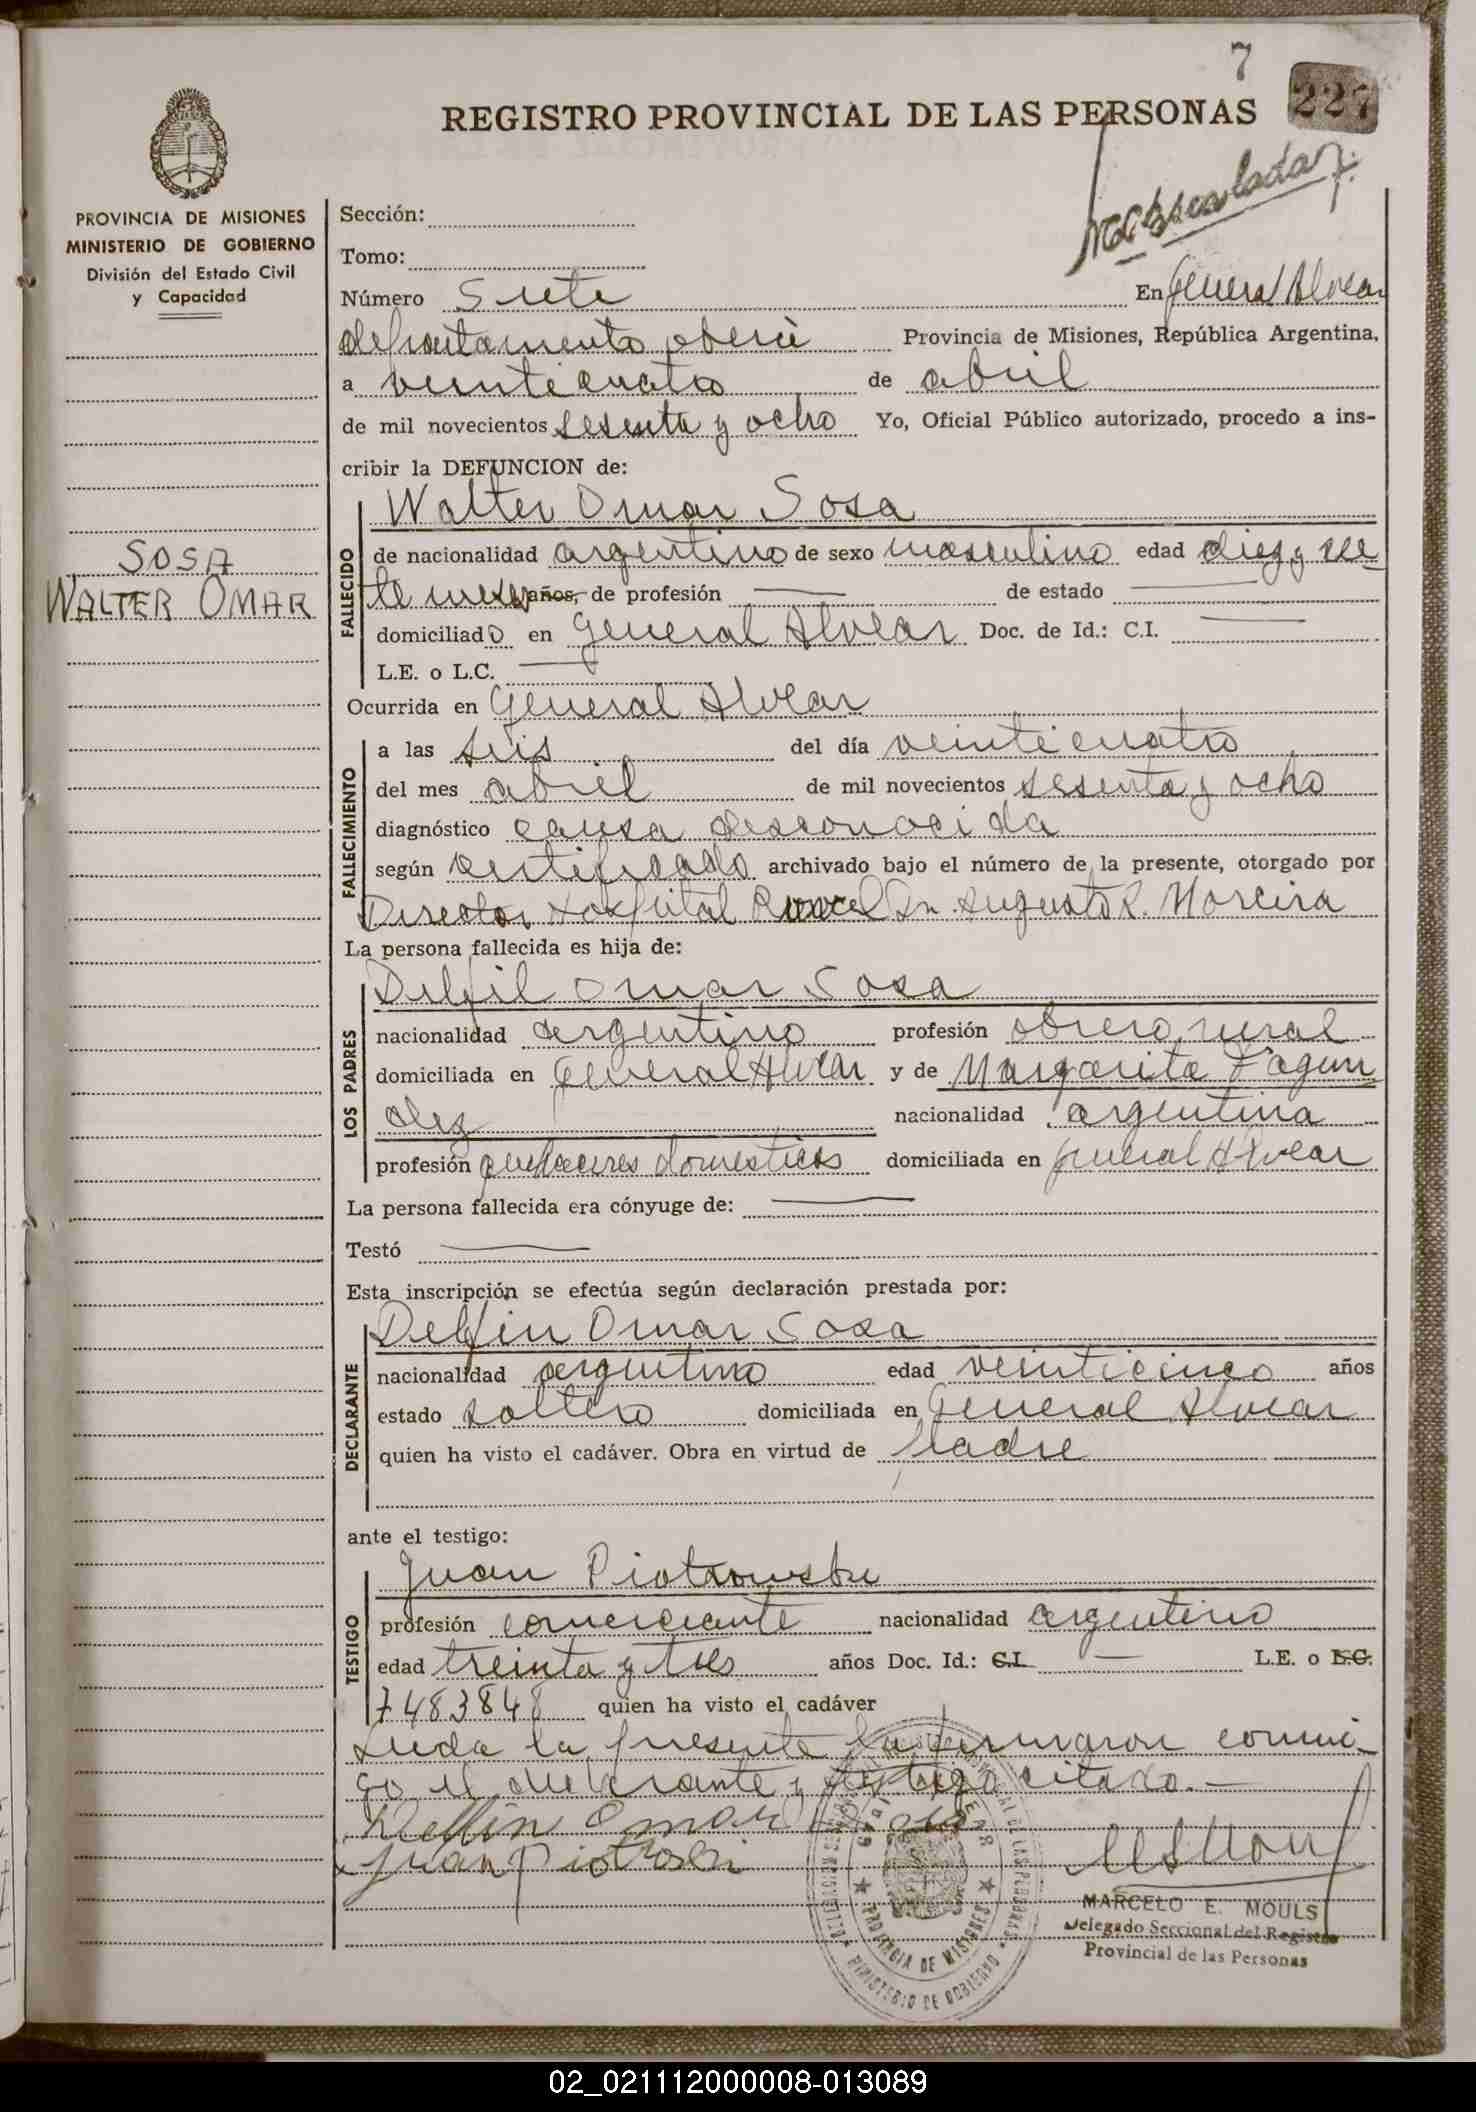 7
227
REGISTRO PROVINCIAL DE LAS PERSONAS
PROVINCIA DE MISIONES
MINISTERIO DE GOBIERNO
División del Estado Civil
y Capacidad
SOSA
WALTER OMAR
Sección:
Tomo:
Número Siete En General Alvear
departamento oberá Provincia de Misiones, República Argentina,
a veinticuatro de abril
de mil novecientos sesenta y ocho Yo, Oficial Público autorizado, procedo a ins-
cribir la DEFUNCION de:
FALLECIDO
Walter Omar Sosa
de nacionalidad argentino de sexo masculino edad diez y sie-
te meses años, de profesión — de estado —
domiciliado en General Alvear Doc. de Id.: C.I. —
L.E. o L.C. —
Ocurrida en General Alvear
FALLECIMIENTO
a las seis del día veinticuatro
del mes abril de mil novecientos sesenta y ocho
diagnóstico causa desconocida
según certificado archivado bajo el número de la presente, otorgado por
Director Hospital Dr. Augusto R. Moreira
La persona fallecida es hija de:
LOS PADRES
Delfil Omar Sosa
nacionalidad argentino profesión obrero rural
domiciliada en General Alvear y de Margarita Fagun
dez nacionalidad argentina
profesión quehaceres domesticos domiciliada en General Alvear
La persona fallecida era cónyuge de: —
Testó —
Esta inscripción se efectúa según declaración prestada por:
DECLARANTE
Delfin Omar Sosa
nacionalidad argentino edad veinticinco años
estado soltero domiciliada en General Alvear
quien ha visto el cadáver. Obra en virtud de padre
ante el testigo:
TESTIGO
Juan Piotrowski
profesión comerciante nacionalidad argentino
edad treinta y tres años Doc. Id.: C.I. — L.E. o L.C.
7483848 quien ha visto el cadáver
Leida la presente la firmaron conmi-
go el declarante y testigo citado. —
Delfin Omar Sosa
Juan Piotroski
MARCELO E. MOULS
Delegado Seccional del Registro
Provincial de las Personas
PROVINCIA DE MISIONES
MINISTERIO DE GOBIERNO
02_021112000008-013089